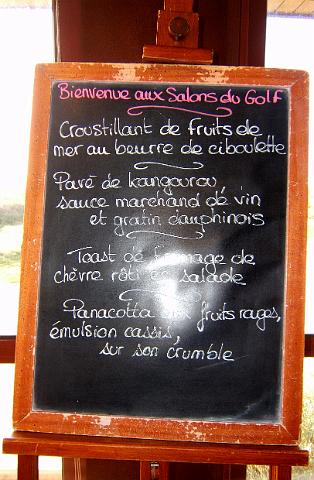 Bienvenue aux Salons du Golf
Croustillant de fruits de
mer au beurre de ciboulette
Pavé de kangourou
sauce marchand de vin
et gratin dauphinois
Toast de fromage de
chèvre rôti en salade
Panacotta aux fruits rouges,
émulsion cassis,
sur son crumble